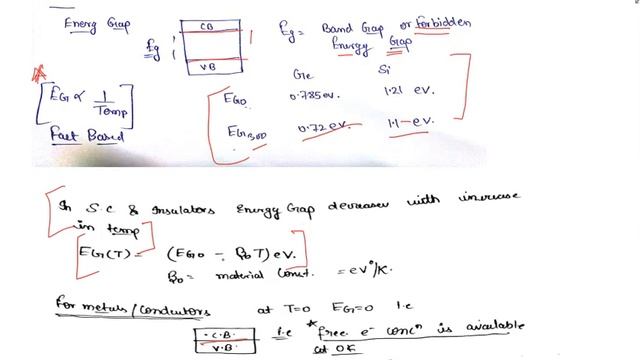 Energy Gap
CB
Eg
V.B
Eg = Band Gap or Forbidden
Energy Gap
Ge Si
EG0 0.785 ev. 1.21 ev.
EG300 0.72 ev. 1.1 - ev.
EG ∝ 1/Temp
Fact Based
In S.C & Insulators Energy Gap decreases with increase
in temp
EG(T) = (EG0 - β0T) ev.
β0 = material Const. = ev°/K.
For metals/Conductors at T=0 EG=0 i.e
C.B.
V.B.
i.e * free e- concn is available
at 0K